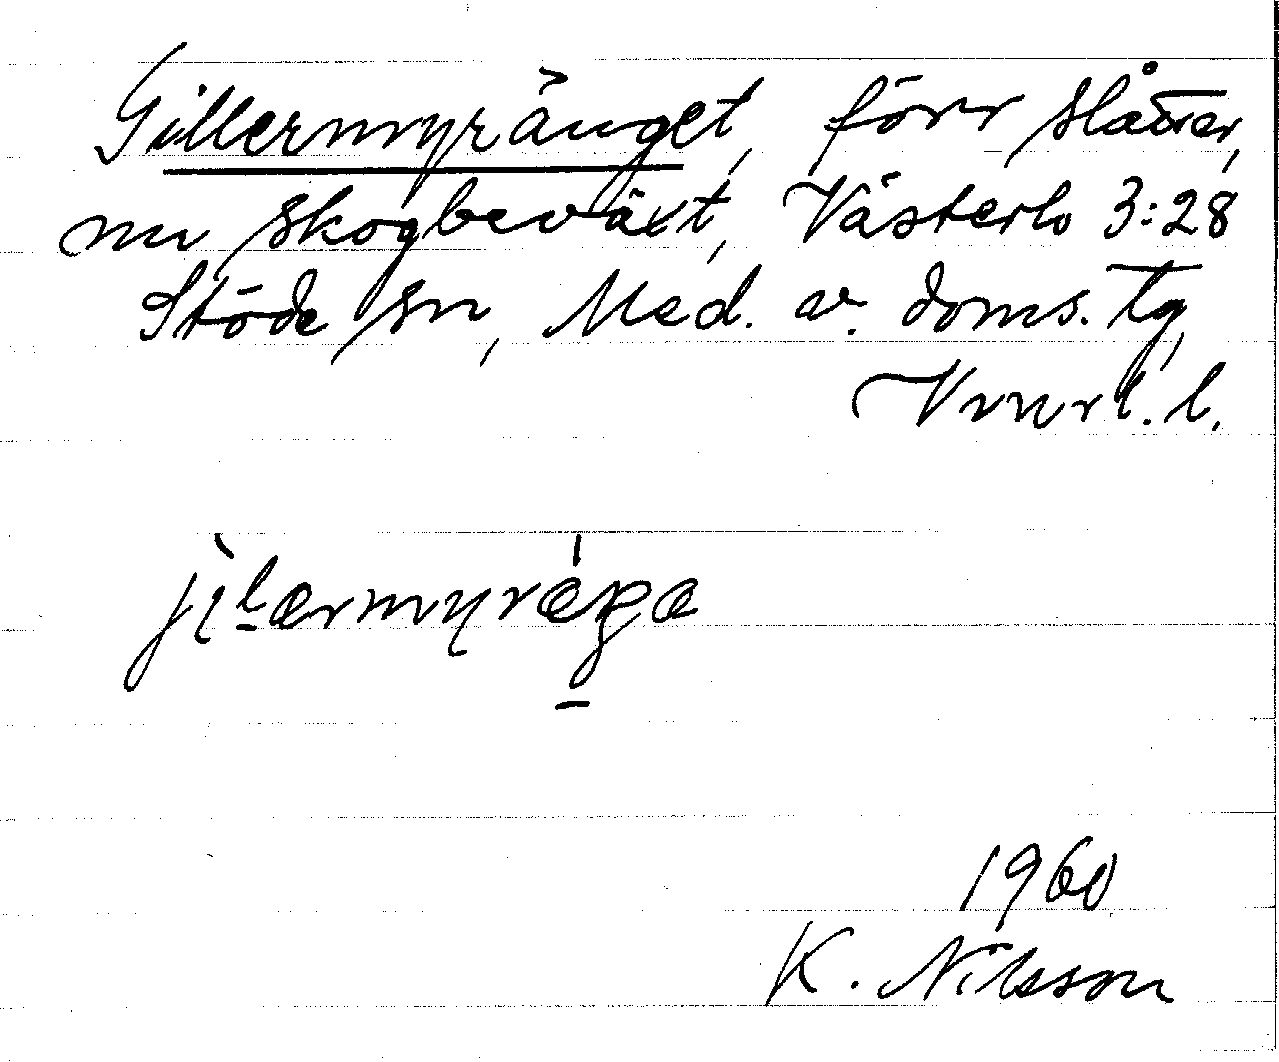 Gillermyränget, förr slåtter,
nu skogbeväxt, Västerlo 3:28
Stöde sn, Med. v. doms. Tg,
l.
1960
K. Nilsson